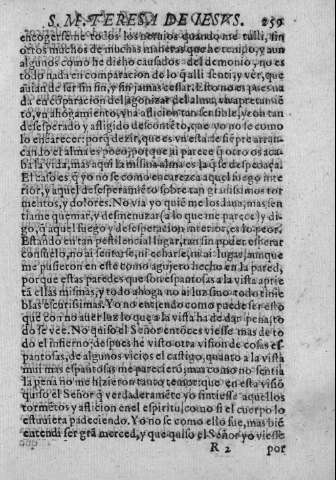 S. M. TERESA DE IESVS. 259
encogerseme todos los neruios quando me tulli, sin
otros muchos de muchas maneras que he tenido, y aun
algunos como he dicho causados del demonio, no es
todo nada en comparacion de lo q̃ alli senti, y ver, que
auian de ser sin fin, y sin jamas cessar. Esto no es pues na
da en cõparacion del agonizar del alma, vn apretamiẽ
to, vn ahogamiento, vna aflicion tan sensible, y con tan
desesperado y afligido descontẽto, que yo no se como
lo encarecer: porq̃ dezir, que es vn estarse siẽpre arran-
cando el alma es poco, porque aũ parece q̃ otro os aca-
ba la vida, mas aqui la misma alma es la q̃ se despedaça.
El caso es q̃ yo no se como encarezca aquel fuego inte
rior, y aquel desesperamiẽto sobre tan grauissimos tor
mentos, y dolores. No via yo quiẽ me los daua, mas sen
tiame quemar, y desmenuzar (a lo que me parece) y di
go, q̃ aquel fuego y desesperacion interior, es lo peor.
Estando en tan pestilencial lugar, tan sin poder esperar
consuelo, no ai sentarse, ni echarse, ni ai lugar, aunque
me pusieron en este como agujero hecho en la pared,
porque estas paredes que son espantosas a la vista aprie
tã ellas mismas, y todo ahoga no ai luz sino todo tinie
blas escurissimas. Yo no entiendo como puede ser esto
que con no auer luz lo que a la vista ha de dar pena, to
do se vee. No quiso el Señor entõces viesse mas de to
do el infierno; despues he visto otra vision de cosas es-
pantosas, de algunos vicios el castigo, quanto a la vista
mui mas espantosas me parecierõ; mas como no sentia
la pena no me hizieron tanto temor: que en esta visiõ
quiso el Señor q̃ verdaderamẽte yo sintiesse aquellos
tormẽtos y aflicion en el espiritu, como si el cuerpo lo
estuuiera padeciendo. Yo no se como ello fue, mas biẽ
entendi ser grã merced, y que quiso el Señor yo viesse
R 2 por